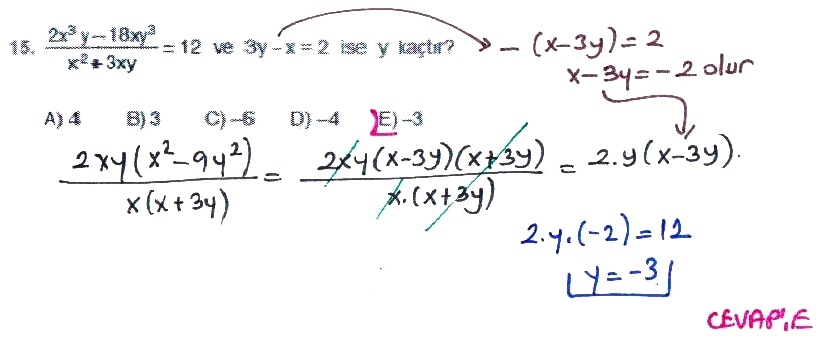 15. (2x³y − 18xy³)/(x² + 3xy) = 12 ve 3y − x = 2 ise y kaçtır? → − (x−3y) = 2
x − 3y = −2 olur
A) 4 B) 3 C) −6 D) −4 E) −3
2xy(x²−9y²)/x(x+3y) = 2xy(x−3y)(x+3y)/x.(x+3y) = 2.y(x−3y).
2.y.(−2) = 12
y = −3
CEVAP: E